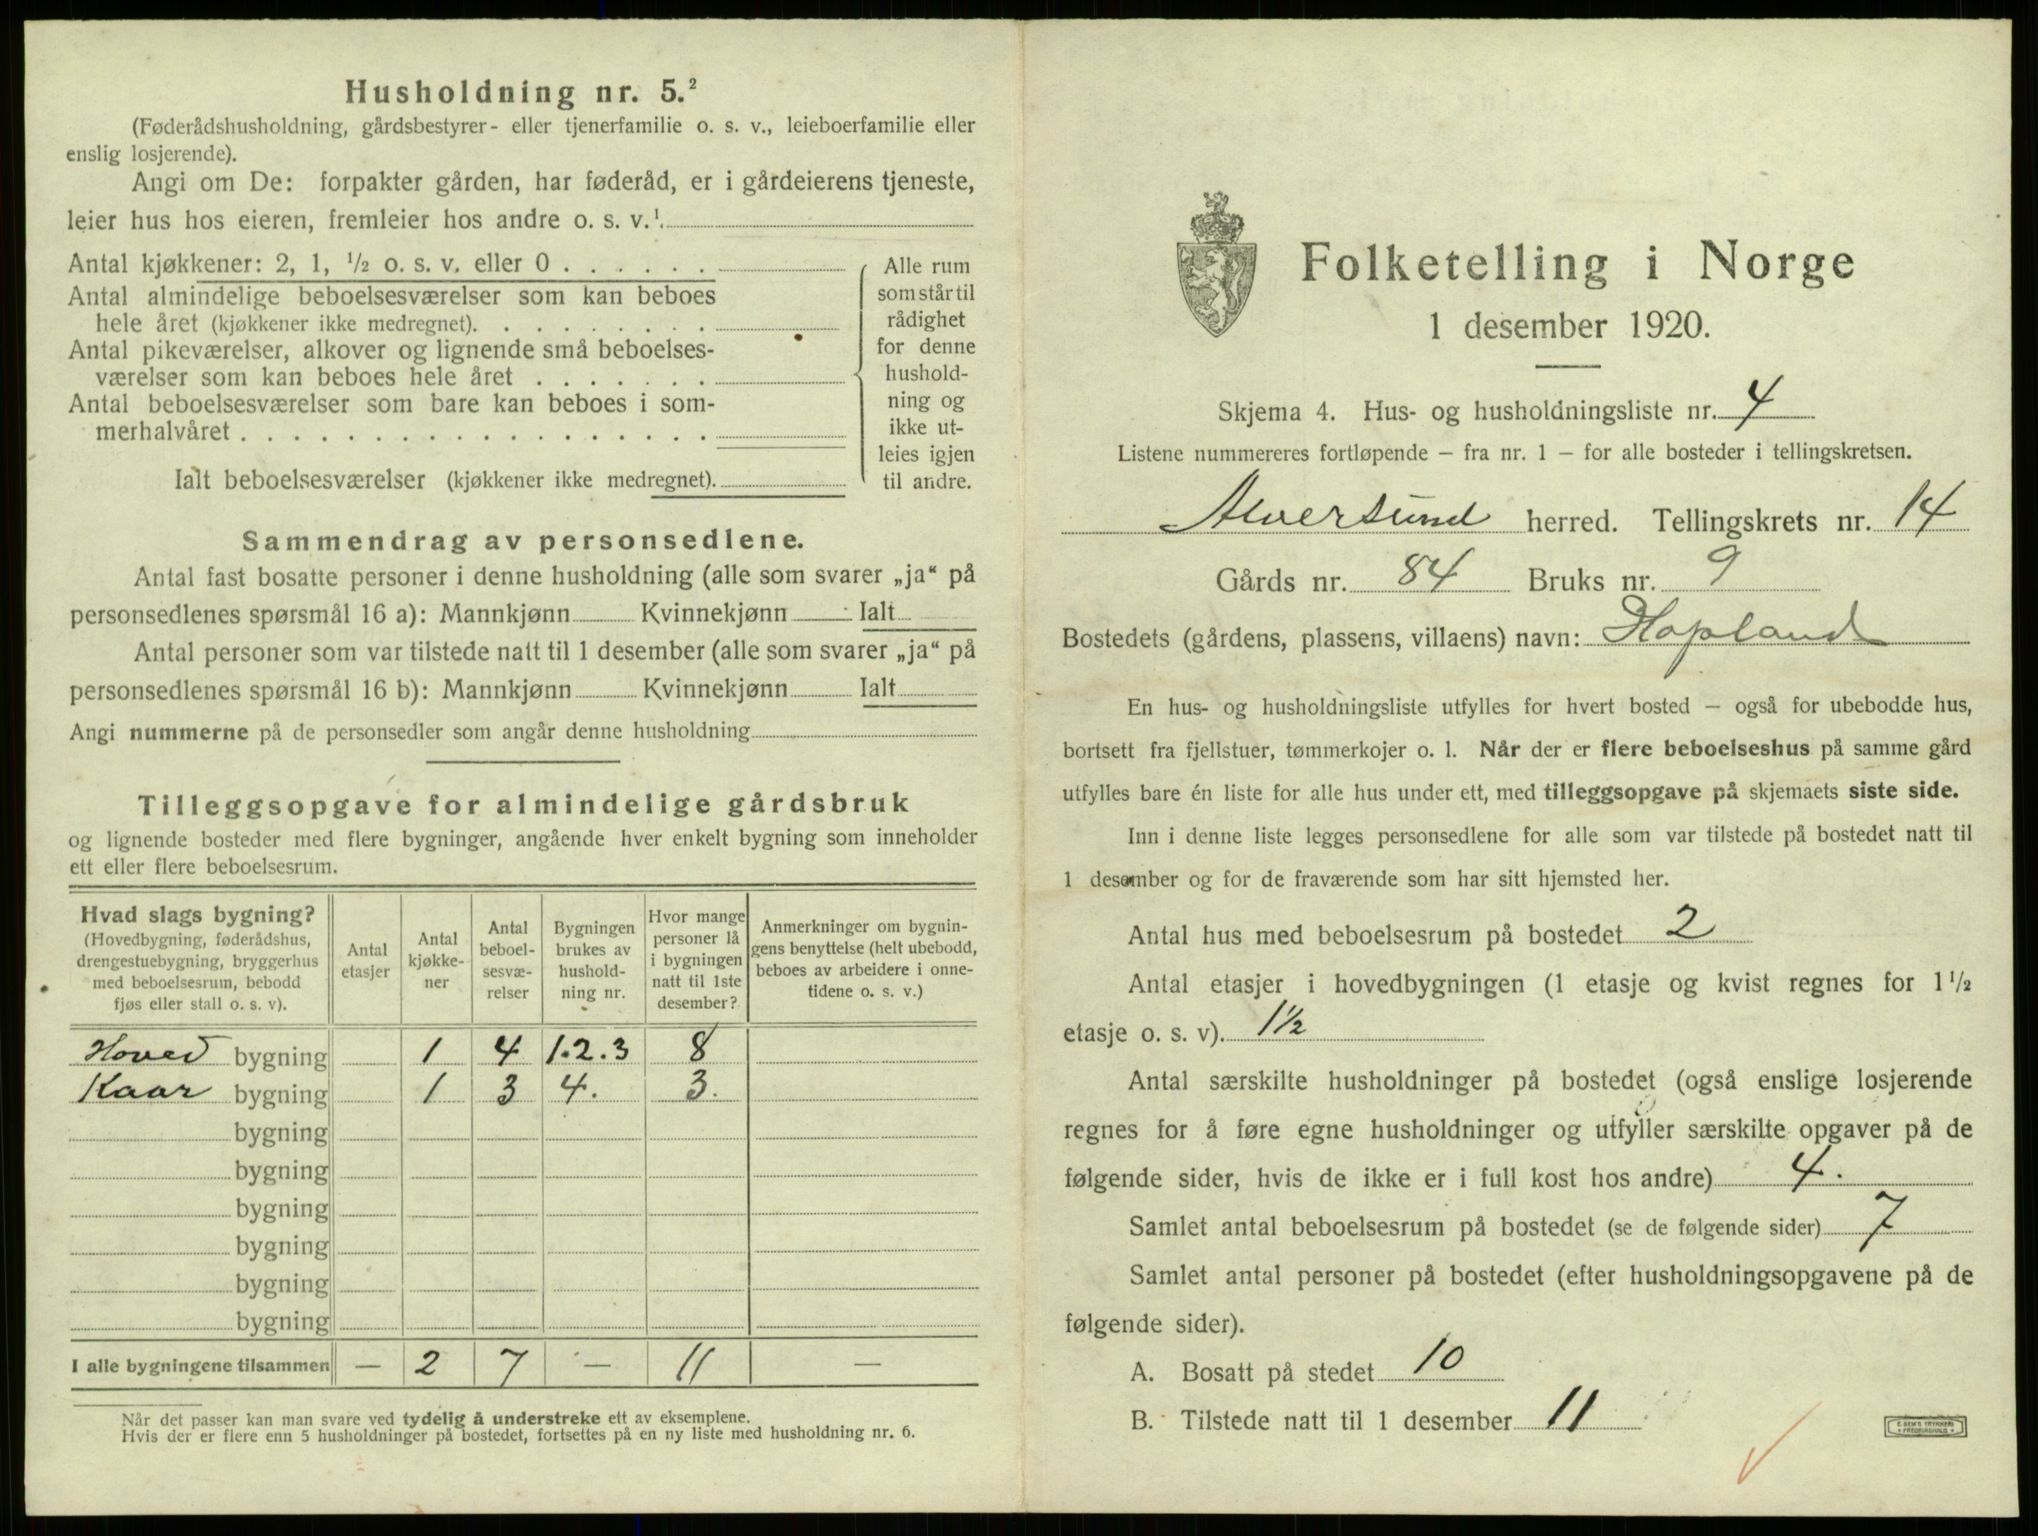 Husholdning nr. 5.²
(Føderådshusholdning, gårdsbestyrer- eller tjenerfamilie o. s. v., leieboerfamilie eller
enslig losjerende).
Angi om De: forpakter gården, har føderåd, er i gårdeierens tjeneste,
leier hus hos eieren, fremleier hos andre o. s. v.¹
Antal kjøkkener: 2, 1, ½ o. s. v. eller 0
Antal almindelige beboelsesværelser som kan beboes
hele året (kjøkkener ikke medregnet).
Antal pikeværelser, alkover og lignende små beboelses-
værelser som kan beboes hele året
Antal beboelsesværelser som bare kan beboes i som-
merhalvåret
Ialt beboelsesværelser (kjøkkener ikke medregnet).
Alle rum
som står til
rådighet
for denne
hushold-
ning og
ikke ut-
leies igjen
til andre.
Sammendrag av personsedlene.
Antal fast bosatte personer i denne husholdning (alle som svarer „ja“ på
personsedlenes spørsmål 16 a): Mannkjønn Kvinnekjønn Ialt
Antal personer som var tilstede natt til 1 desember (alle som svarer „ja“ på
personsedlenes spørsmål 16 b): Mannkjønn Kvinnekjønn Ialt
Angi nummerne på de personsedler som angår denne husholdning
Tilleggsopgave for almindelige gårdsbruk
og lignende bosteder med flere bygninger, angående hver enkelt bygning som inneholder
ett eller flere beboelsesrum.
Hvad slags bygning?
(Hovedbygning, føderådshus,
drengestuebygning, bryggerhus
med beboelsesrum, bebodd
fjøs eller stall o. s. v).
Antal
etasjer
Antal
kjøkke-
ner
Antal
beboel-
sesvæ-
relser
Bygningen
brukes av
hushold-
ning nr.
Hvor mange
personer lå
i bygningen
natt til 1ste
desember?
Anmerkninger om bygnin-
gens benyttelse (helt ubebodd,
beboes av arbeidere i onne-
tidene o. s. v.)
Hoved bygning 1 4 1.2.3 8
Kaar bygning 1 3 4. 3.
bygning
bygning
bygning
bygning
bygning
bygning
I alle bygningene tilsammen — 2 7 — 11 —
Når det passer kan man svare ved tydelig å understreke ett av eksemplene.
Hvis der er flere enn 5 husholdninger på bostedet, fortsettes på en ny liste med husholdning nr. 6.
Folketelling i Norge
1 desember 1920.
Skjema 4. Hus- og husholdningsliste nr. 4
Listene nummereres fortløpende — fra nr. 1 — for alle bosteder i tellingskretsen.
Alversund herred. Tellingskrets nr. 14
Gårds nr. 84 Bruks nr. 9
Bostedets (gårdens, plassens, villaens) navn: Hopland
En hus- og husholdningsliste utfylles for hvert bosted — også for ubebodde hus,
bortsett fra fjellstuer, tømmerkojer o. l. Når der er flere beboelseshus på samme gård
utfylles bare én liste for alle hus under ett, med tilleggsopgave på skjemaets siste side.
Inn i denne liste legges personsedlene for alle som var tilstede på bostedet natt til
1 desember og for de fraværende som har sitt hjemsted her.
Antal hus med beboelsesrum på bostedet 2
Antal etasjer i hovedbygningen (1 etasje og kvist regnes for 1½
etasje o. s. v). 1½
Antal særskilte husholdninger på bostedet (også enslige losjerende
regnes for å føre egne husholdninger og utfyller særskilte opgaver på de
følgende sider, hvis de ikke er i full kost hos andre) 4.
Samlet antal beboelsesrum på bostedet (se de følgende sider) 7
Samlet antal personer på bostedet (efter husholdningsopgavene på de
følgende sider).
A. Bosatt på stedet 10
B. Tilstede natt til 1 desember 11